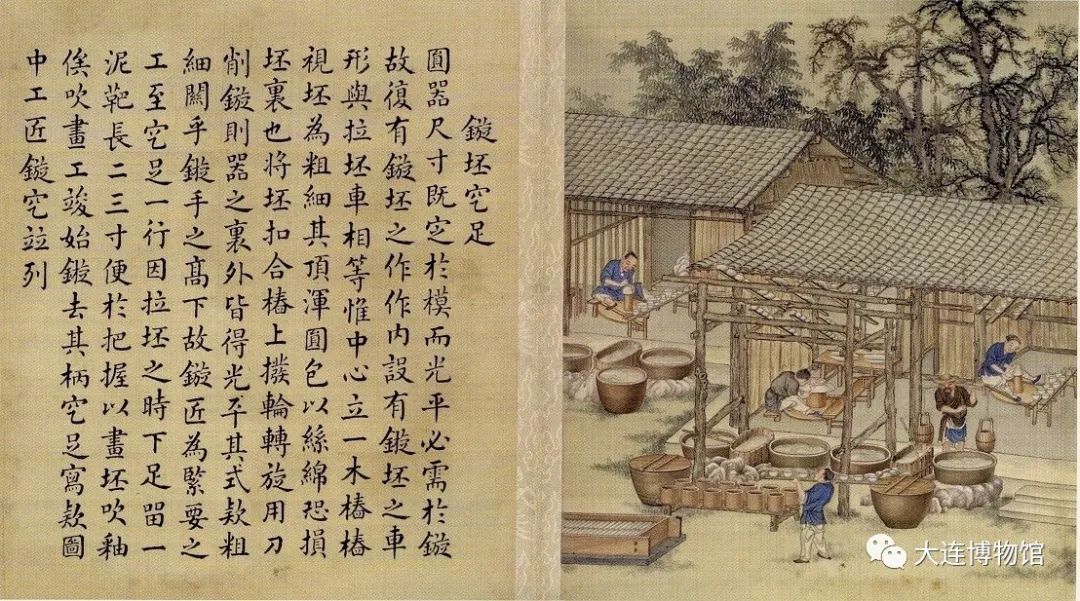 鏇坯穵足
圓器尺寸既定於模而光平必需於鏇
故復有鏇坯之作作内設有鏇坯之車
形與拉坯車相等惟中心立一木樁樁
視坯為粗細其頂渾圓包以絲綿恐損
坯裏也將坯扣合樁上撥輪轉旋用刀
削鏇則器之裏外皆得光平其式欵粗
細關乎鏇手之髙下故鏇匠為緊要之
工至穵足一行因拉坯之時下足留一
泥靶長二三寸便於把握以畫坯吹釉
俟吹畫工竣始鏇去其柄穵足寫欵圖
中工匠鏇穵竝列
大连博物馆